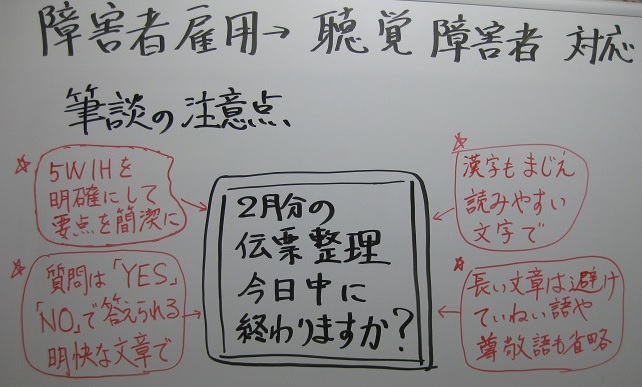 障害者雇用→聴覚障害者 対応
筆談の注意点
☆
5W1Hを
明確にして
要点を簡潔に
☆
質問は「YES」
「NO」で答えられる
明快な文章で
2月分の
伝票整理
今日中に
終わりますか?
☆
漢字もまじえ
読みやすい
文字で
☆
長い文章は避け
ていねい語や
尊敬語も省略